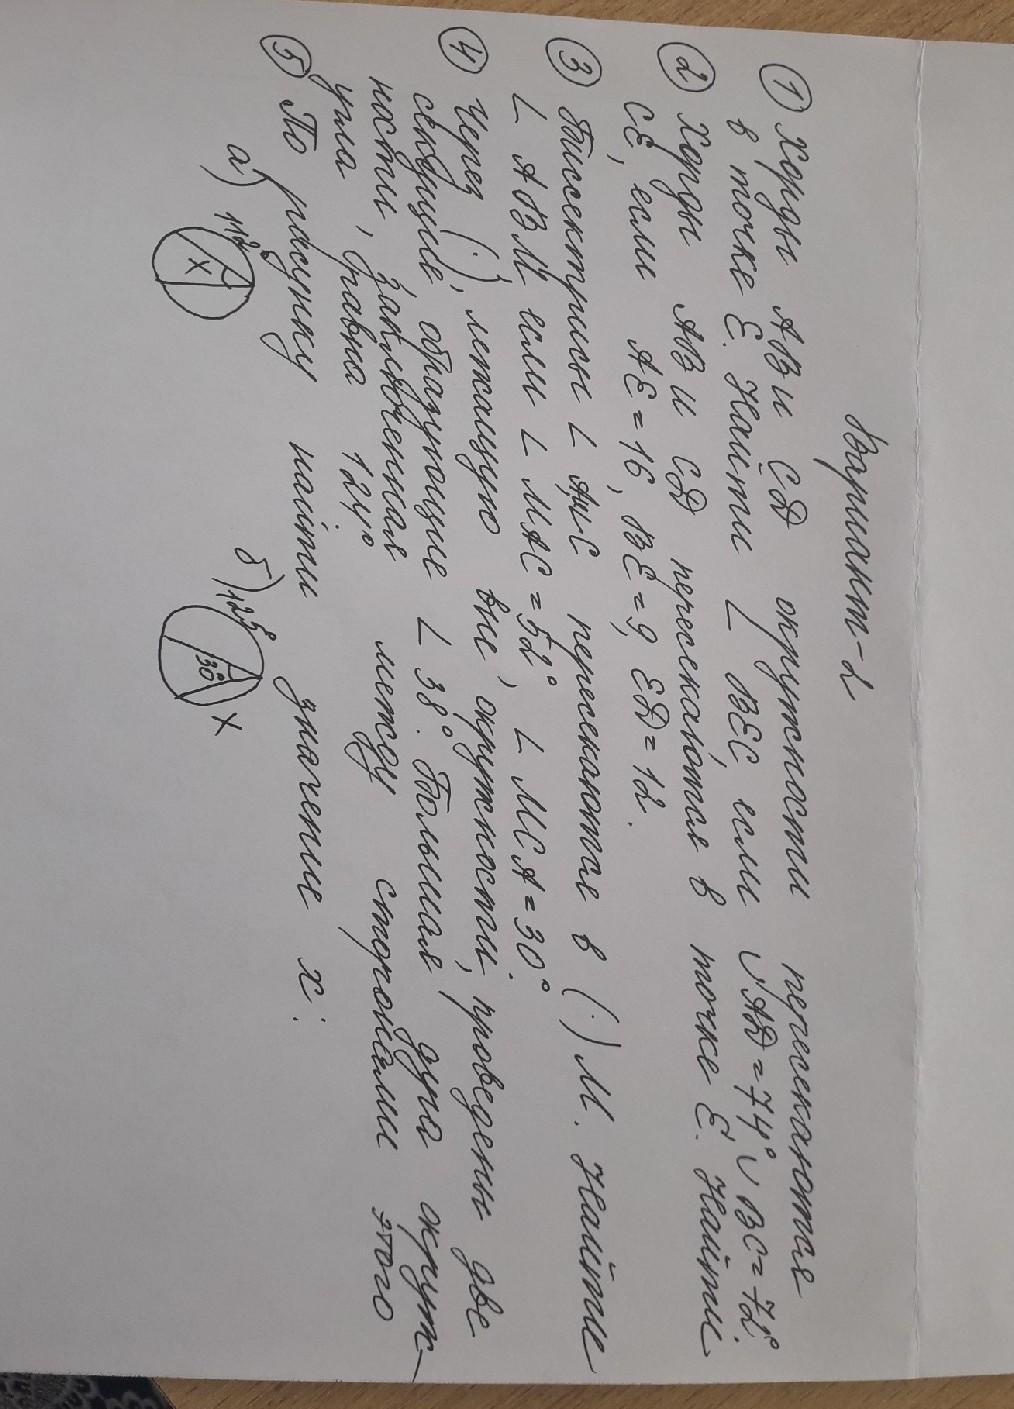 Вариант-2
① Хорды АВ и СД окружности пересекаются
в точке Е. Найти ∟ ВЕС, если ◡АД=74° ◡ВС=72°.
② Хорды АВ и СД пересекаются в точке Е. Найти
СЕ, если АЕ=16, ВЕ=9, ЕД=12.
③ Биссектрисы ∟ АиС пересекаются в (·) М. Найти
∟ АВМ если ∟ МАС=52°, ∟ МСА=30°.
④ Через (·), лежащую вне окружности, проведены две
секущие, образующие ∟ 38°. Большая дуга окруж-
ности, заключенная между сторонами этого
угла, равна 124°
⑤ По рисунку найти значение х:
а) 112° х
б) 125° 30° х